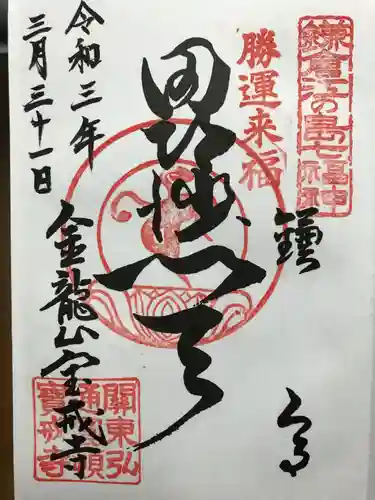 鎌倉江の島七福神
勝運来福
鎌
倉
毘沙門天
令和三年
三月三十一日
金龍山宝戒寺
關東弘
通
寶戒寺